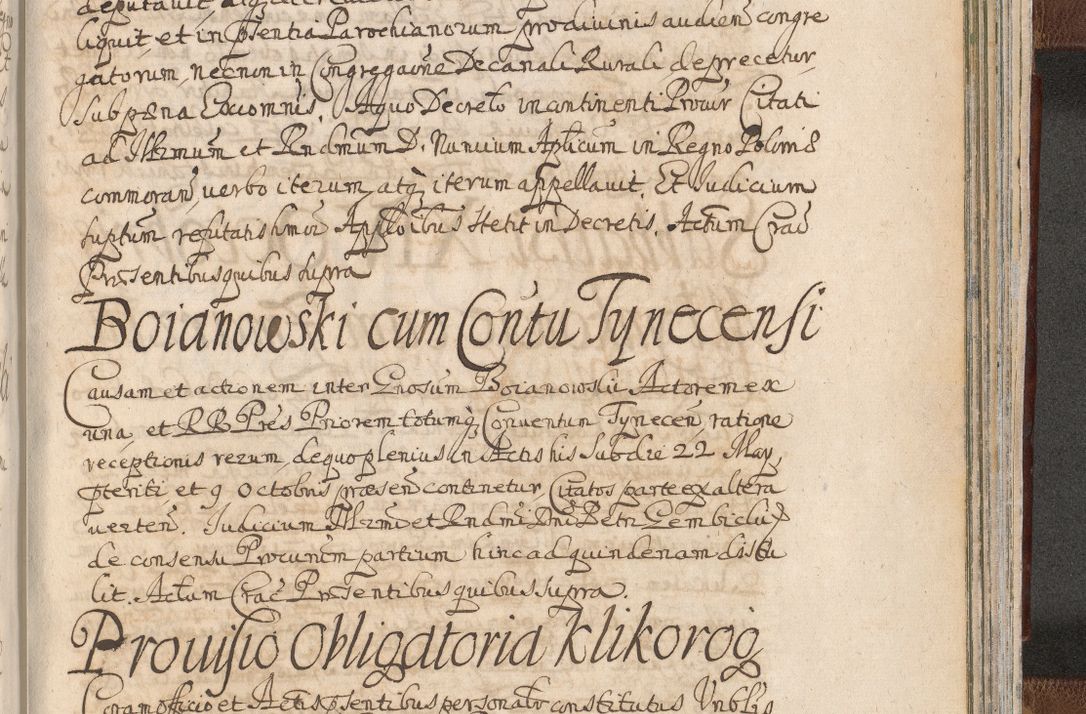 liquit, et in pñsentia Parochianorum pro diuinis audien̄ congre
gatorum, necnon in Congregaōne Decanali Rurali deprecetur,
sub pæna Excomnis. A quo Decreto incontinenti Procur Citati
ad Illr̄mum et Rndmum D. Nuncium Aplicum in Regno Polon̄
commoran̄, uerbo iterum, atq; iterum appellauit. Et Iudicium
suptum refutatis hmoi Appllōibus stetit in Decretis. Actum Crac̄
Præsentibus quibus supra
Boianowski cum Contu Tynecensi
Causam et actionem inter Gnosum Boianowski Actorem ex
una, et RR Pres Priorem totumq; Conuentum Tynecen̄, ratione
receptionis rerum, de quo plenius in Actis his sub die 22 May,
pteriti, et 9 Octobris præsen̄ continetur, Citatos parte ex altera
uerten̄. Iudicium Illr̄mi et Rndmi Dni Petri Gembicki
de consensu Procurum partium hinc ad quindenam distu
lit. Actum Crac̄ Præsentibus quibus supra.
Prouisio Obligatoria Klikorog
Coram officio et Actis psentibus personalr̄ constitutus Vnblis